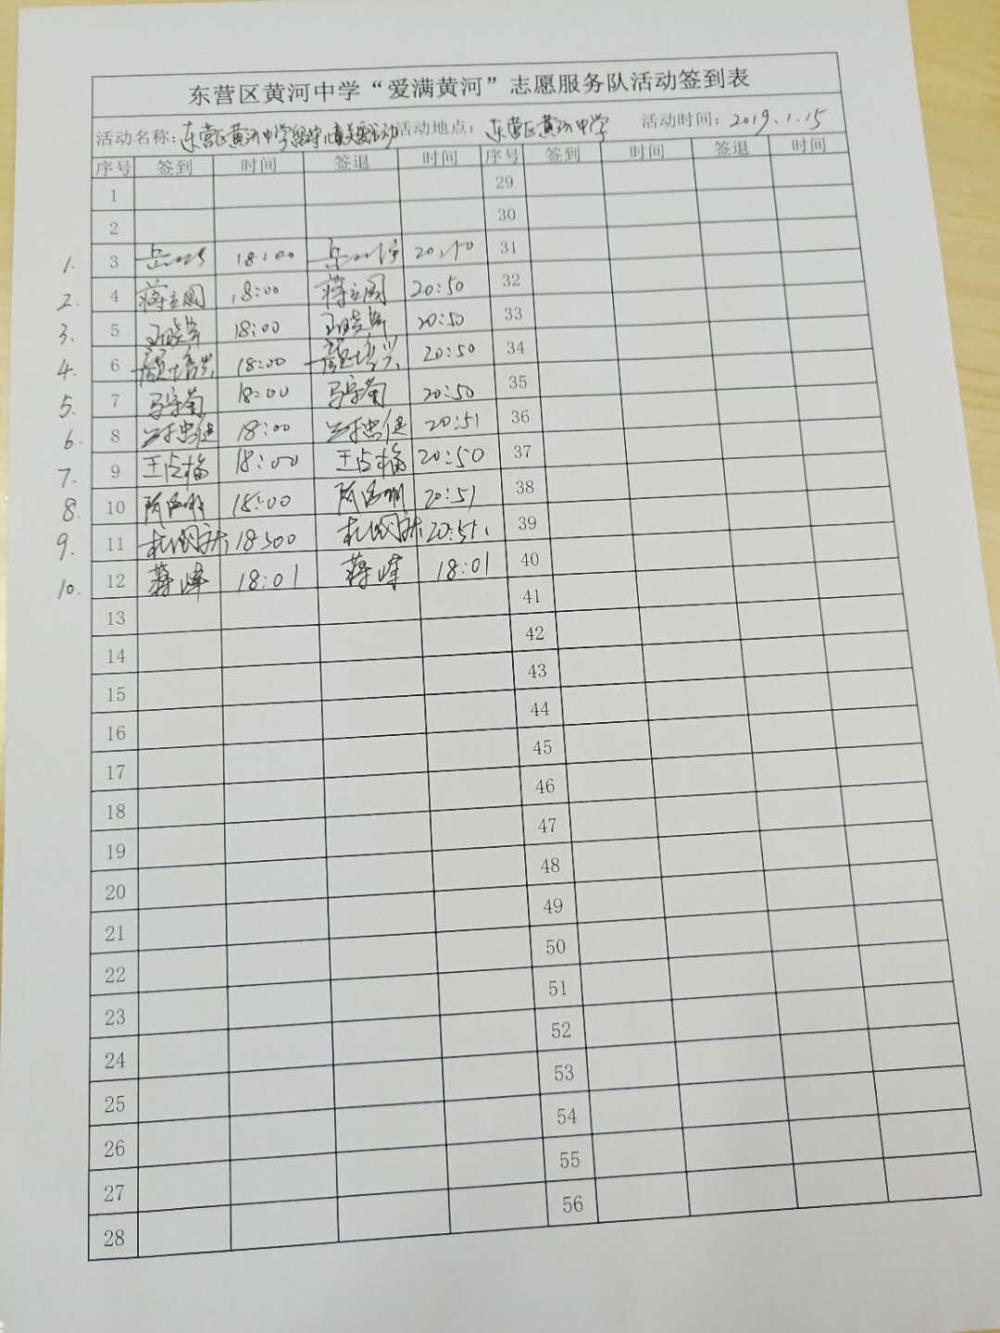 东营区黄河中学“爱满黄河”志愿服务队活动签到表
活动名称：东营区黄河中学留守儿童关爱活动 活动地点：东营区黄河中学 活动时间：2019.1.15
序号 签到 时间 签退 时间 序号 签到 时间 签退 时间
1 29
2 30
1. 3 18:00 31
2. 4 蒋立国 18:00 蒋立国 20:50 32
3. 5 18:00 20:50 33
4. 6 18:00 20:50 34
5. 7 18:00 20:50 35
6. 8 18:00 20:51 36
7. 9 18:00 20:50 37
8. 10 18:00 20:51 38
9. 11 18:00 20:51. 39
10. 12 蒋峰 18:01 蒋峰 18:01 40
13 41
14 42
15 43
16 44
17 45
18 46
19 47
20 48
21 49
22 50
23 51
24 52
25 53
26 54
27 55
28 56